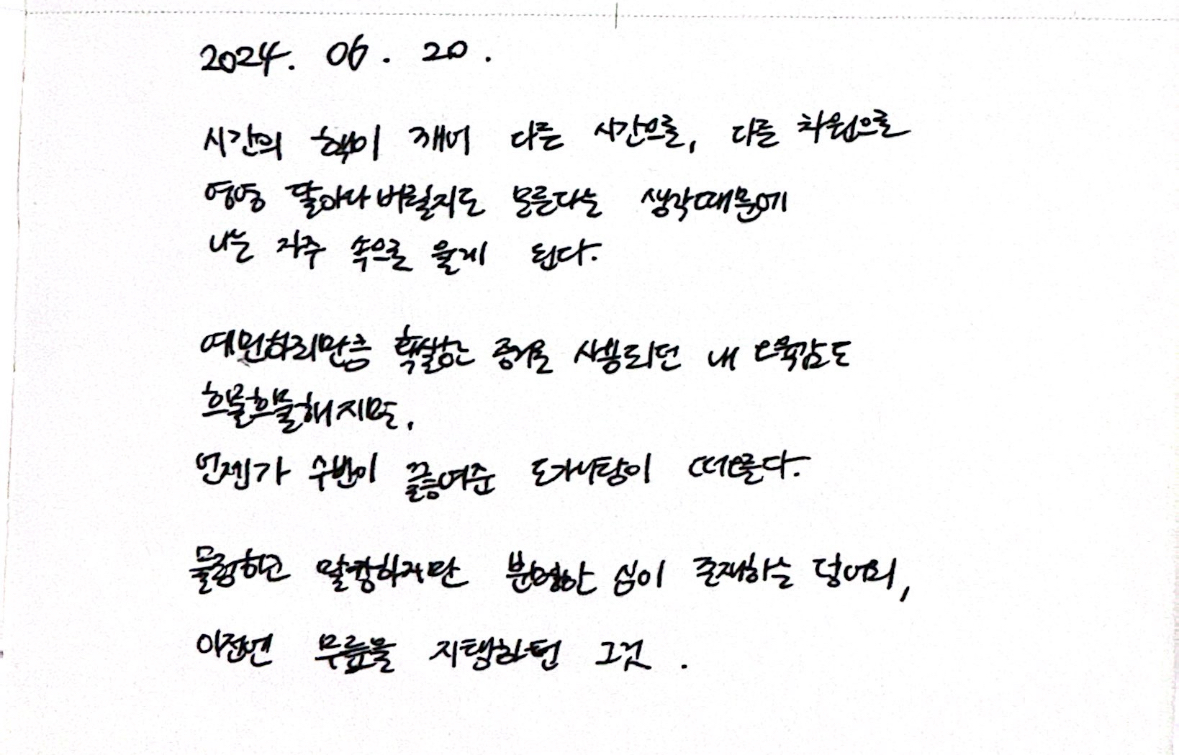 2024. 06. 20.
시간의 핵이 깨어 다른 시간으로, 다른 차원으로
영영 달아나 버릴지도 모른다는 생각때문에
나는 자주 속으로 울게 된다.
예민하리만큼 확실한 증거로 사용되던 내 오육감도
흐물흐물해지면,
언젠가 수반이 끓여준 도가니탕이 떠오른다.
물렁하고 말랑하지만 분명한 심이 존재하는 덩어리,
이전엔 무릎을 지탱하던 그것.